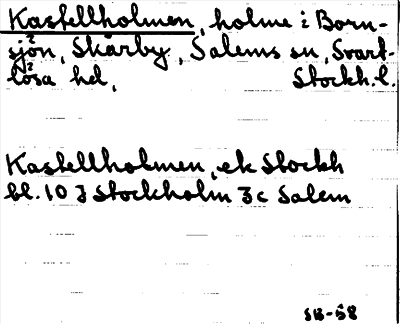 Kastellholmen, holme i Born-
sjön, Skårby, Salems sn, Svart-
lösa hd, Stockh. l.
Kastellholmen, ek Stockh
bl. 10 J Stockholm 3c Salem
SB-58